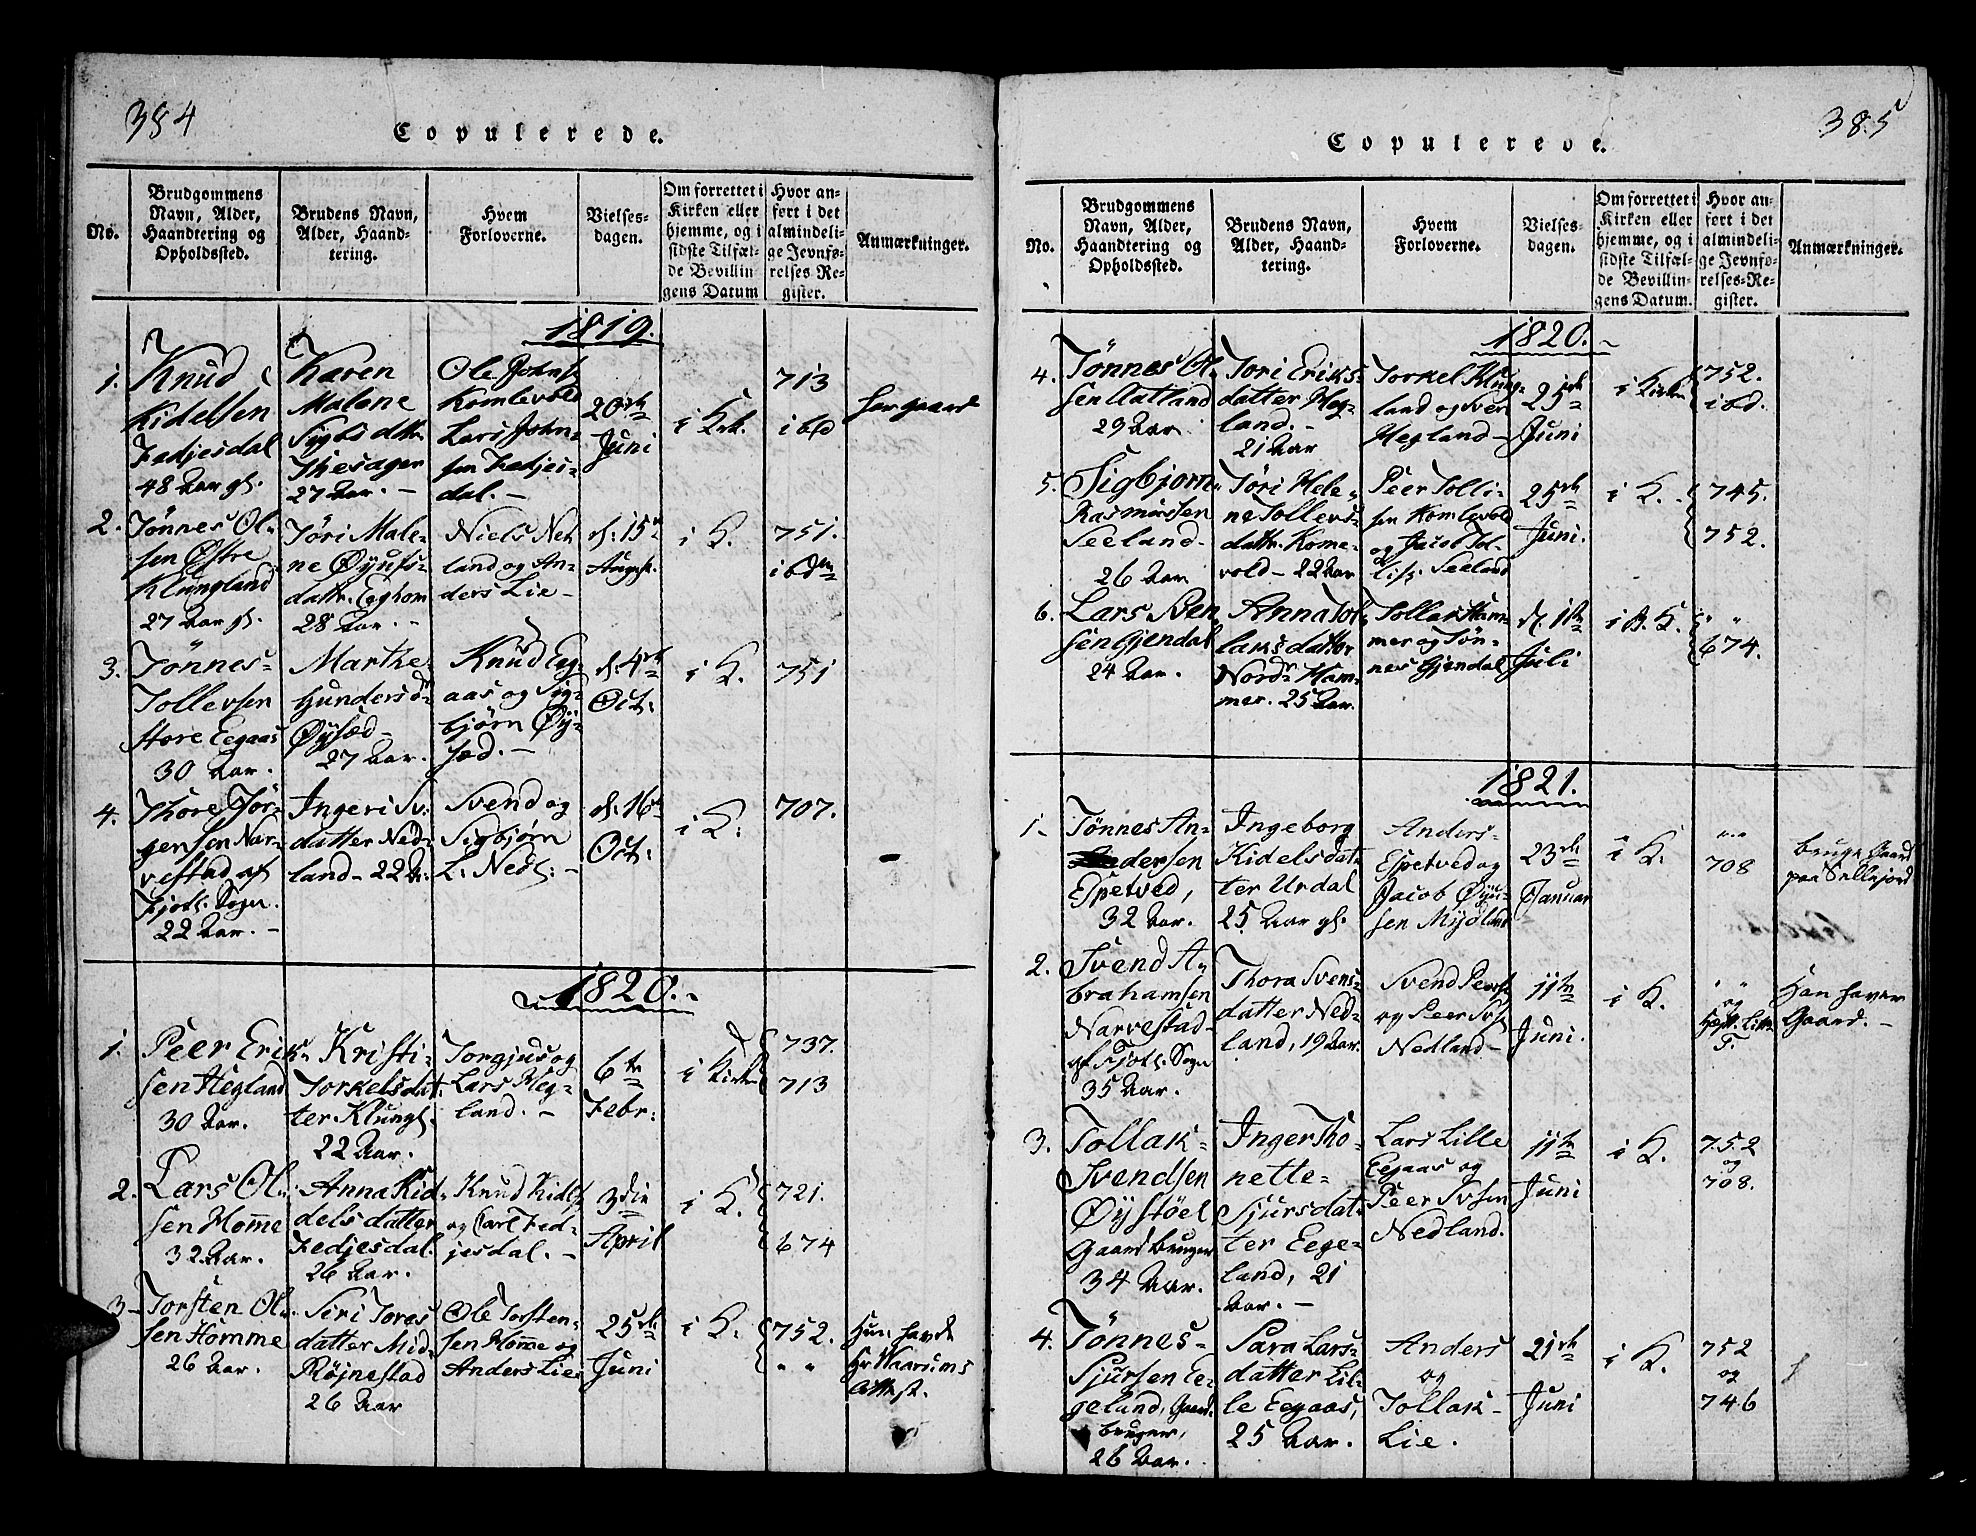 384
Copulerede.
No.
Brudgommens
Navn, Alder,
Haandtering og
Opholdssted.
Brudens Navn,
Alder, Haand-
tering.
Hvem
Forloverne.
Vielses-
dagen.
Om forrettet i
Kirken eller
hjemme, og i
sidste Tilfæl-
de Bevillin
gens Datum
Hvor an-
ført i det
almindeli-
ge Jevnfø-
relses Re-
gister.
Anmærkninger.
1819.
1.
Knud
Kidelsen
Fedjesdal
48 Aar gl.
Karen
Malene
Sigbs dttr.
27 Aar. -
Ole Johns.
Komlevold
Lars John-
sen Fedjes-
dal. -
20de
Juni
i Krk.
713
ibd
har gaard
2.
Tønnes Ol-
sen Østre
Klungland
27 Aar gl.
Tøri Male-
ne Øyufs-
dattr. Eeghom
28 Aar. -
Niels Ned
land og An-
ders Lie -
d. 15de
August.
i K.
751.
ibdm
3.
Tønnes-
Tollevsen
store Eegaas
30 Aar.
Marthe
Gunders d-
Øysæd -
27 Aar.
Knud Eeg-
aas og Sig-
bjørn Øy-
sæd. -
d. 4de
Oct:
i K.
751
4.
Thore Jør-
gensen Nar-
vestad af
Fjotl. Sogn.
22 Aar. -
Ingeri Sv:
datter Ned-
land - 22 A:
Svend og
Sigbjørn
L. Nedl: -
d. 16de
Oct:
i K:
707.
1820. -
1.
Peer Erik-
sen Hegland
30 Aar.
Kristi-
Torkelsdat-
ter Klungl.
22 Aar.
Torgjus og
Lars Heg-
land. -
6te
Febr:
i Kirken
737.
713
2.
Lars Ol-
sen Homme
32 Aar.
Anna Kid-
dels datter
Fedjesdal.
26 Aar.
Knud Kidels.
og Carl Fed-
jesdal. -
3die
April
i K.
721.
674
3 -
Torsten Ol-
sen Homme
26 Aar.
Siri Tores
datter Mid-
Røjnestad
26 Aar
Ole Torsten-
sen Homme og
Anders Lie
25de
Juni
i K.
752.
" "
Hun havde
Hr Waarums
Attest.
385
Copulerede.
No.
Brudgommens
Navn, Alder,
Haandtering og
Opholdssted.
Brudens Navn,
Alder, Haand-
tering.
Hvem
Forloverne.
Vielses-
dagen.
Om forrettet i
Kirken eller
hjemme, og i
sidste Tilfæl-
de Bevillin-
gens Datum.
Hvor an-
ført i det
almindeli-
ge Jevnfø-
relses-Re-
gister.
Anmærkninger.
1820. -
4.
Tønnes Ol-
sen Aatland
29 Aar.
Tori Eriks-
datter Heg-
land. -
21 Aar
Torkel Klung-
land og Sven
Hegland -
25de
Juni
i Kirken
752.
ibd.
5.
Sigbjørn
Rasmussen
Seeland -
26 Aar
Tøri Hele-
ne Tollevs-
dattr. Kome-
vold - 22 Aar
Peer Tolli-
sen Komlevold
og Jacob Tol-
lis. Seeland
25de
Juni.
i K.
745.
752.
6.
Lars Sven
sen Gjendal
24 Aar.
Anna Tol-
laks datter
Nordr Ham-
mer. 25 Aar.
Tollak Ham-
mer og Tøn-
nes Gjendal
d. 1ste
Juli
i B. K.
" "
674.
1821.
1 -
Tønnes An-
dersen
Espetved,
32 Aar.
Ingeborg
Kidelsdat-
ter Urdal
25 Aar gl.
Anders-
Espetved og
Jacob Øyu-
sen Mydland
23de
Januar
i K.
"
708
bruge Gaard
paa Sellejord
2.
Svend A-
brahamsen
Narvestad -
af Fjotl. Sogn
35 Aar.
Thora Svens-
datter Ned-
land, 19 Aar.
Svend Peers.
og Peer Svs.
Nedland -
11te
Juni.
i K.
" "
og
T.
Han haver
Gaard. -
3.
Tollak-
Svendsen
Øystøel
Gaard bruger
34 Aar.
Inger Tho-
nette-
Sjursdat-
ter Eege-
land, 21
Aar. -
Lars Lille
Eegaas og
Peer Svsen
Nedland.
11te
Juni
i K.
752
og
708.
4.
Tønnes-
Sjursen Ee-
geland, Gaard-
bruger,
26 Aar.
Sara Lars-
datter Lil-
le Eegaas,
25 Aar.
Anders
og
Tollak-
Lie.
21de
Juni
i K.
752
og
746